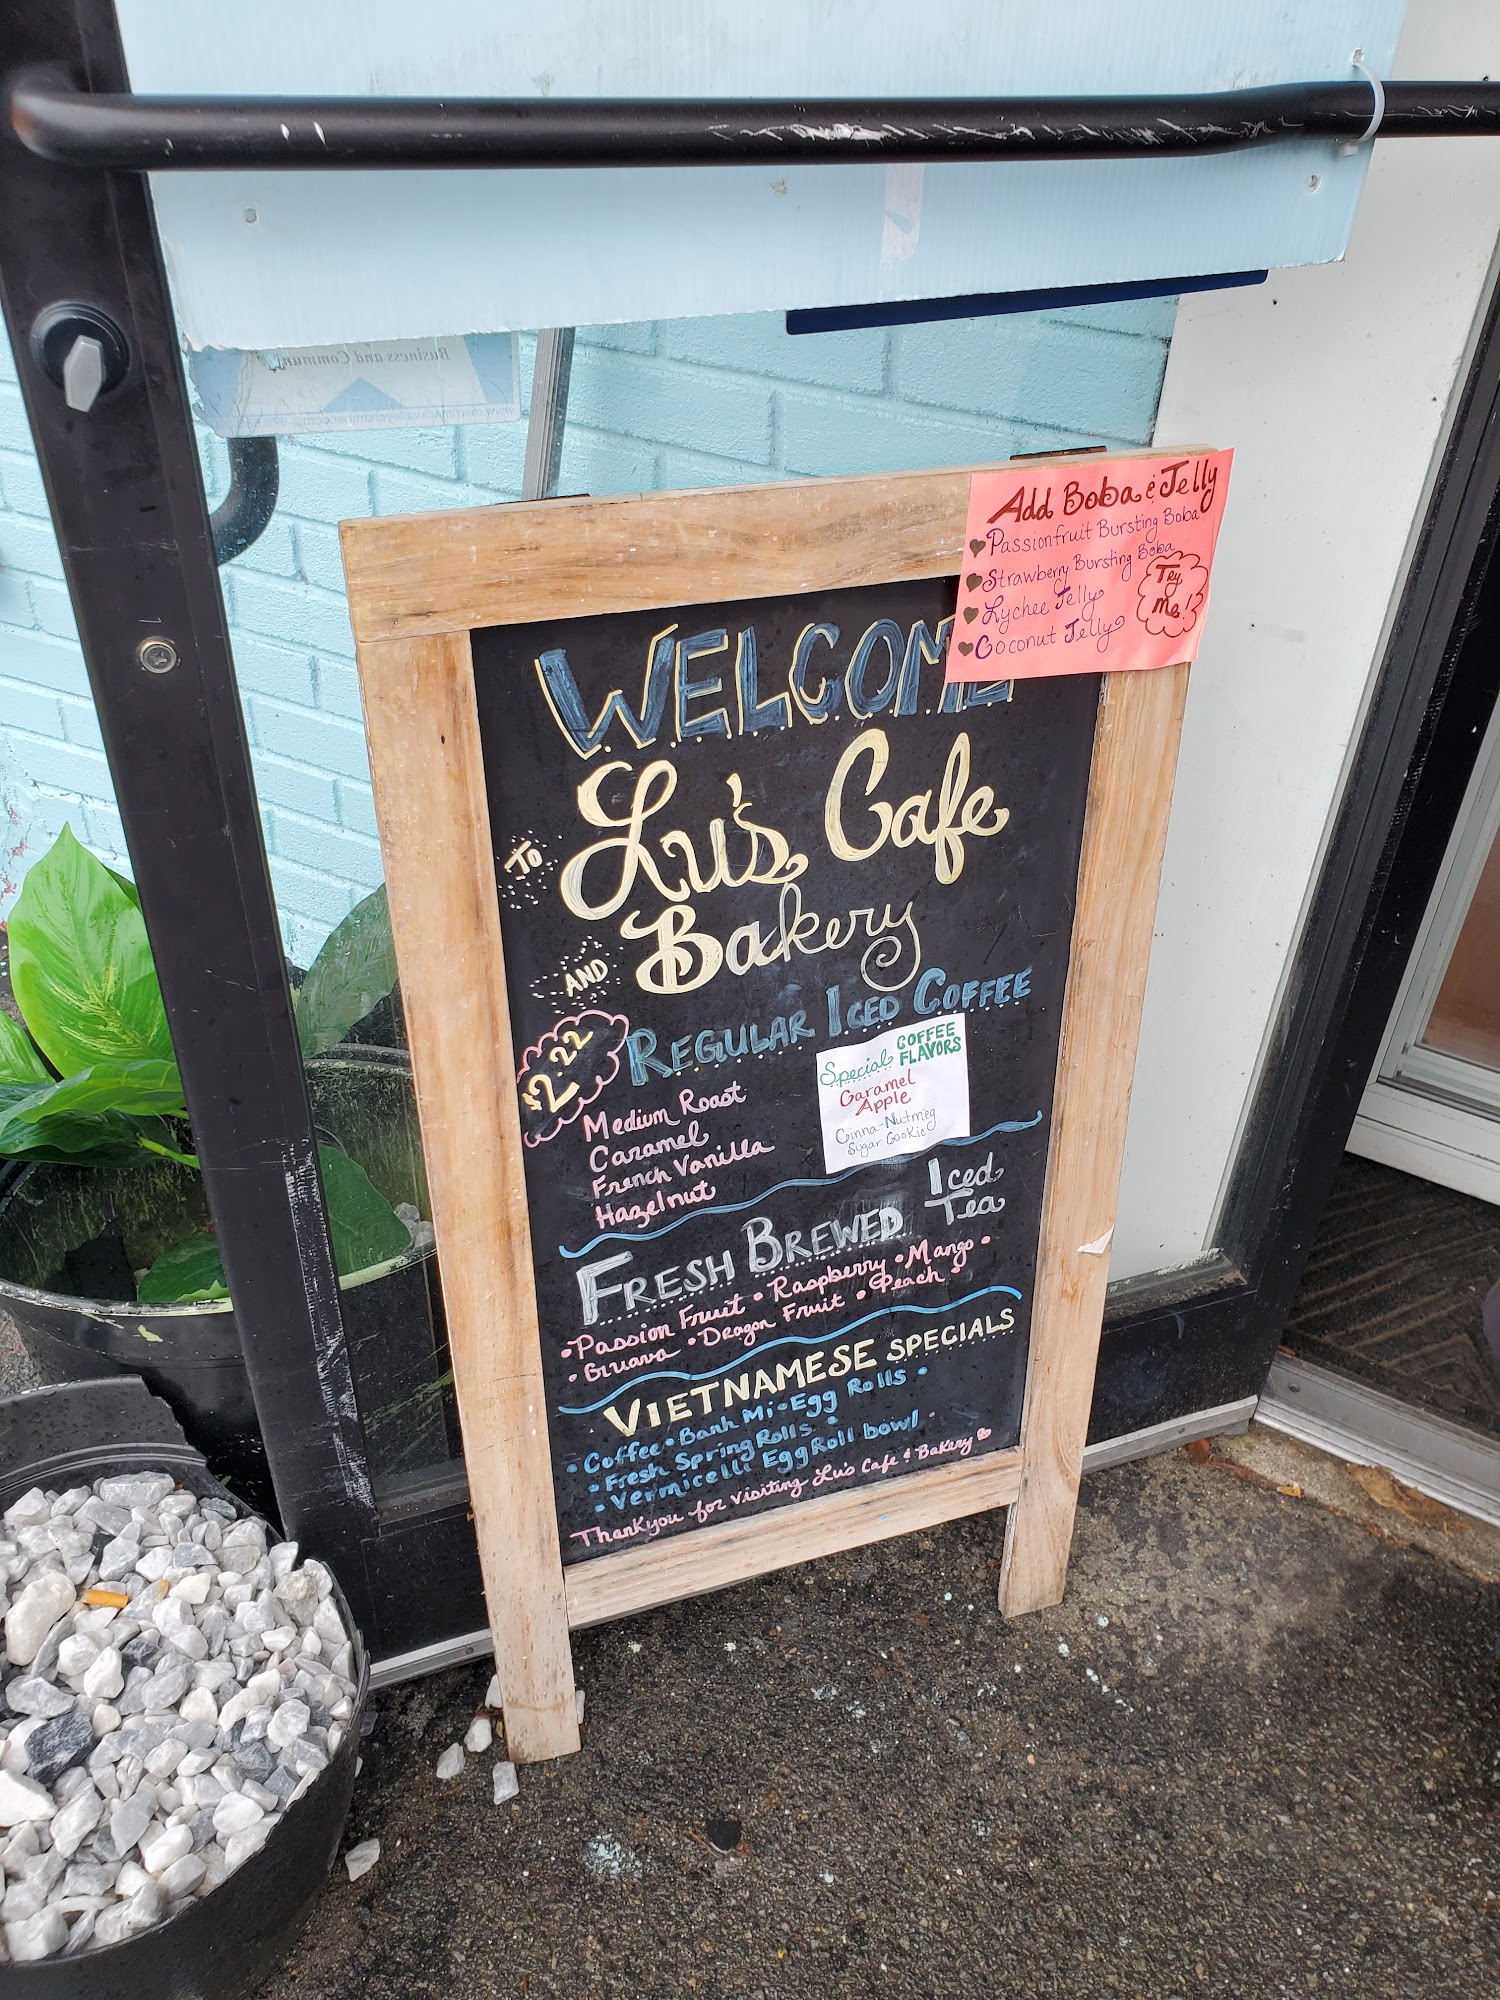 Business and Community
Add Boba & Jelly
Passionfruit Bursting Boba
Strawberry Bursting Boba
Lychee Jelly
Coconut Jelly
Try
Me!
WELCOME
TO
Lu's Cafe
AND
Bakery
$2.22
REGULAR ICED COFFEE
Medium Roast
Caramel
French Vanilla
Hazelnut
Special COFFEE
FLAVORS
Caramel
Apple
Cinna-Nutmeg
Sugar Cookie
FRESH BREWED Iced
Tea
• Passion Fruit • Raspberry • Mango •
• Guava • Dragon Fruit • Peach •
VIETNAMESE SPECIALS
• Coffee • Banh Mi • Egg Rolls •
• Fresh Spring Rolls •
• Vermicelli Egg Roll bowl •
Thankyou for visiting Lu's Cafe & Bakery